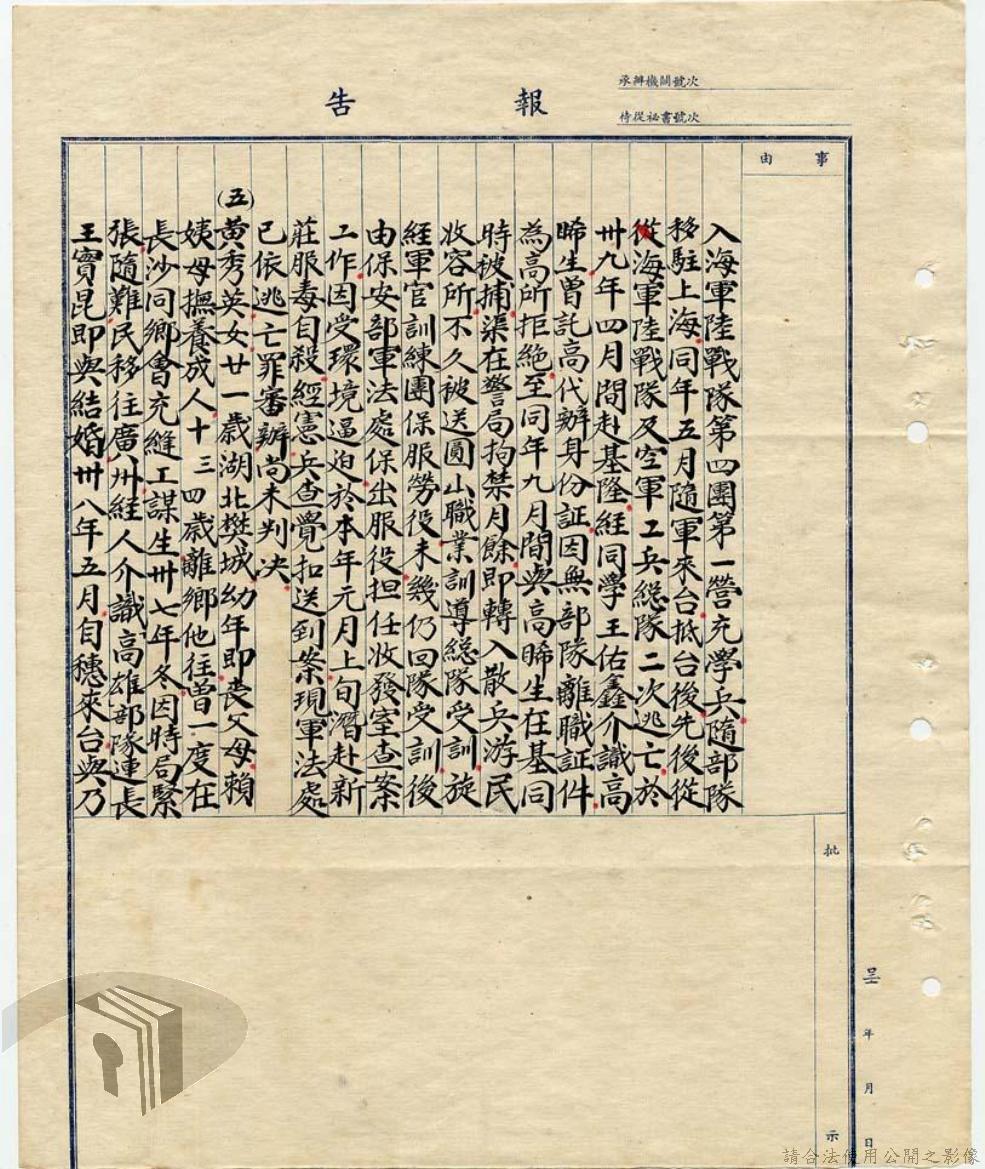 報告
承辦機關號次
侍從祕書號次
事由
入海軍陸戰隊第四團第一營充學兵隨部隊
移駐上海同年五月隨軍來台抵台後先後從
從海軍陸戰隊及空軍工兵總隊二次逃亡於
卅九年四月間赴基隆經同學王佑鑫介識高
晞生曾託高代辦身份証因無部隊離職証件
為高所拒絕至同年九月間與高晞生在基同
時被捕渠在警局拘禁月餘即轉入散兵游民
收容所不久被送圓山職業訓導總隊受訓旋
經軍官訓練團保服勞役未幾仍回隊受訓後
由保安部軍法處保出服役担任收發室查案
工作因受環境逼迫於本年元月上旬潛赴新
莊服毒自殺經憲兵查覺扣送到案現軍法處
已依逃亡罪審辦尚未判决
(五)黃秀英女廿一歲湖北樊城幼年即丧父母賴
姨母撫養成人十三四歲離鄉他往曾一度在
長沙同鄉會充縫工謀生卅七年冬因時局緊
張隨難民移往廣州経人介識高雄部隊連長
王寶昆即與結婚卅八年五月自穗來台與乃
批示
呈 年 月 日
請合法使用公開之影像